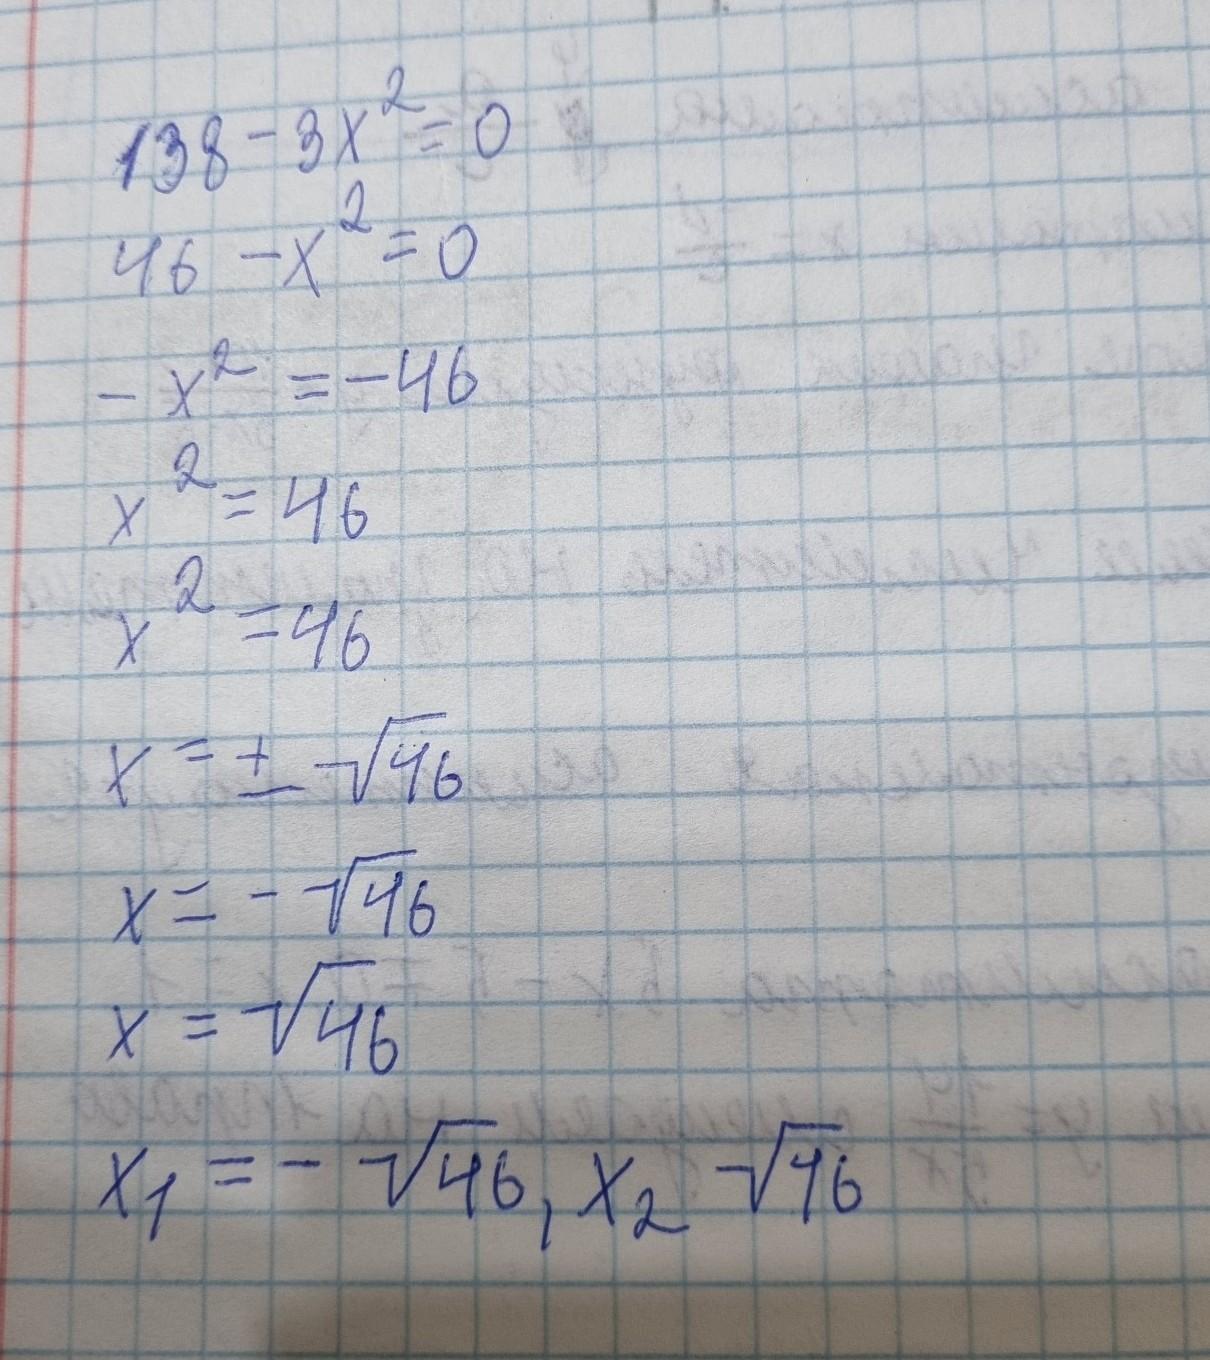 138 - 3x² = 0
46 - x² = 0
- x² = -46
x² = 46
x² = 46
x = ± √46
x = - √46
x = √46
x₁ = - √46, x₂ √46